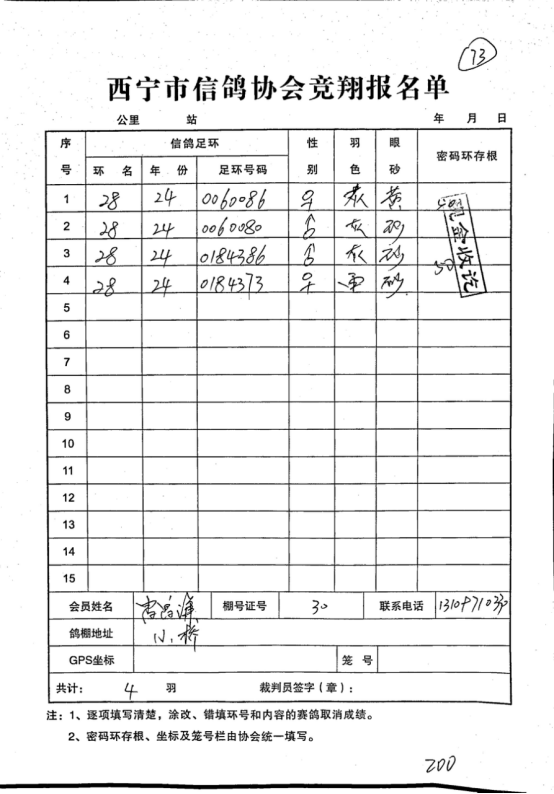 73
西宁市信鸽协会竞翔报名单
公里 站 年 月 日
序号 信鸽足环 性别 羽色 眼砂 密码环存根
环名 年份 足环号码
1 28 24 0060086 ♀ 灰 黄
2 28 24 0060080 ♂ 灰 砂
3 28 24 0184386 ♂ 灰 砂
4 28 24 0184373 ♀ 砂
现金收讫
5
6
7
8
9
10
11
12
13
14
15
会员姓名 棚号证号 30 联系电话
鸽棚地址 小桥
GPS坐标 笼号
共计: 4 羽 裁判员签字(章):
注:1、逐项填写清楚,涂改、错填环号和内容的赛鸽取消成绩。
2、密码环存根、坐标及笼号栏由协会统一填写。
200